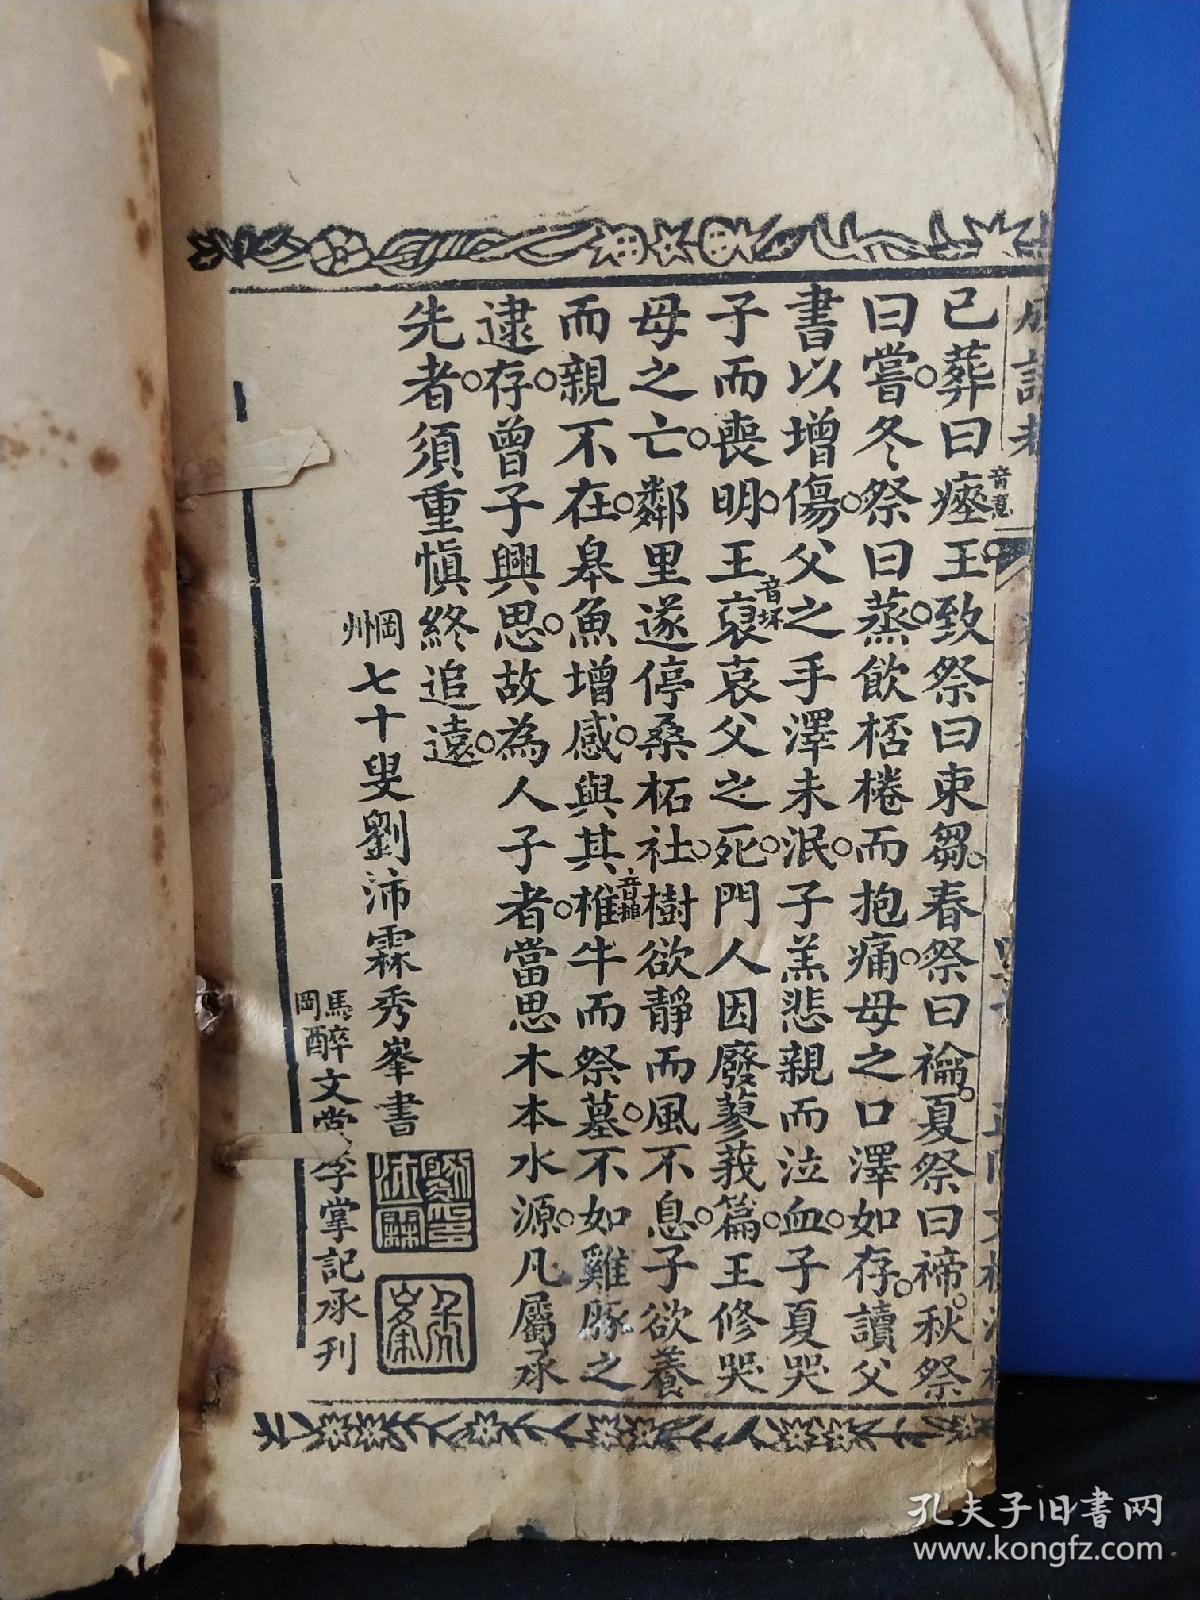 成語考
已葬曰瘞王致祭曰束芻春祭曰禴夏祭曰禘秋祭
音意
曰嘗冬祭曰蒸飲桮棬而抱痛母之口澤如存讀父
書以增傷父之手澤未泯子羔悲親而泣血子夏哭
子而喪明王裒哀父之死門人因廢蓼莪篇王修哭
音坏
母之亡鄰里遂停桑柘社樹欲靜而風不息子欲養
而親不在皋魚增感與其椎牛而祭墓不如雞豚之
逮存曾子興思故為人子者當思木本水源凡屬承
先者須重慎終追遠
岡州七十叟劉沛霖秀峯書
馬岡醉文堂李掌記承刊
孔夫子旧书网
www.kongfz.com